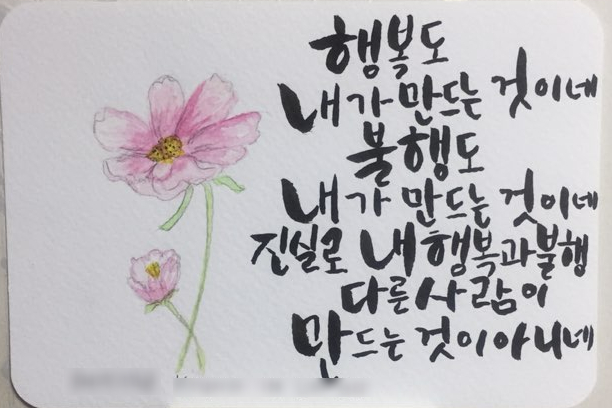 행복도
내가 만드는 것이네
불행도
내가 만드는 것이네
진실로 내 행복과 불행
다른 사람이
만드는 것이 아니네